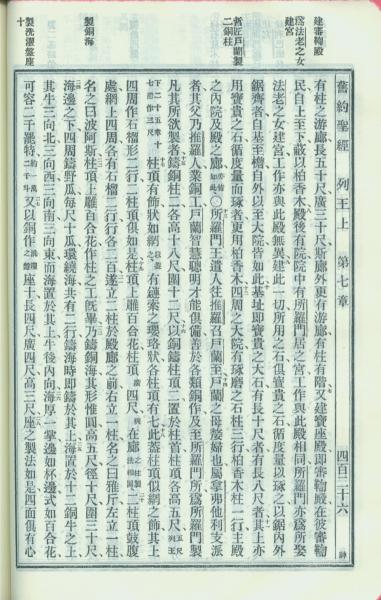 建審鞫殿
爲法老之女
建宮
者匠戶蘭製
二銅柱
製銅海
製洗濯盤座
十
舊約聖經 列王上 第七章 四百二十六
有柱之游廊長五十尺廣三十尺斯廊外更有游廊有柱有階又建寶座殿即審鞫殿在彼審鞫
民自上至下蔽以柏香木殿後有院院中有所羅門居之宮工作與此殿相同所羅門亦爲所娶
法老之女建宮工作亦與此殿無異建此一切所用之石俱寶貴之石循度量以琢之以鋸內外
鋸齊者自基至檐自外以至大院皆如此基址即寶貴之大石有長十尺者長八尺者其上亦
用寶貴之石循度量而琢者更用柏香木四周之大院有琢磨之石柱三行柏香木柱一行主殿
之內院及殿之廊亦皆如此○所羅門王遣人往推羅召戶蘭至戶蘭之母嫠婦也屬拏弗他利支派
者其父乃推羅人業銅工戶蘭智慧聰明才能俱備善於各類銅作及至所羅門所爲所羅門製
凡其所欲製者鑄銅柱二各高十八尺圍十二尺以銅鑄柱頂二置於柱首柱頂各高五尺
柱頂有飾狀如網有鏈索之瓔珞狀各柱頂有七此蓋柱頂似網之飾其上
四周作石榴形二行二柱頂俱如是柱頂上雕百合花柱頂四尺在廊二柱頂鼓腹
處網上四周各有石榴二行行各二百遂立二柱於殿廊之前右立一柱名之曰雅斤左立一柱
名之曰波阿斯柱頂上雕百合花作柱之工旣畢乃鑄銅海其形惟圓高五尺徑十尺圍三十尺
海邊之下四周鑄野瓜每尺十瓜環繞海共有二行鑄海時即鑄於其上海置於十二銅牛之上
其牛三向北三向西三向南三向東而海置於其上牛後內向海厚一掌邊如杯邊式如百合花
可容二千罷特又以銅作座十長四尺廣四尺高三尺座之製法如是四面俱有心